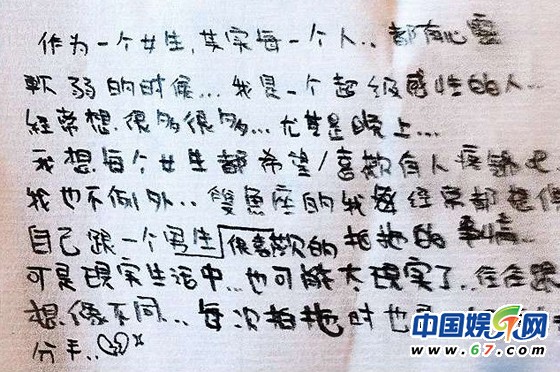 作为一个女生,其实每一个人..都有心靈
軟弱的时候...我是一个超级感性的人...
经常想很多很多...尤其是晚上...
我想每个女生都希望/喜歡有人疼锡吧
我也不例外..雙魚座的我每经常都想像
自己跟一个男生很喜歡的拍拖的事情...
可是現实生活中...也可能太現实了..往往跟
想像不同..每次拍拖时也
分手..
中国娱乐网
www.67.com